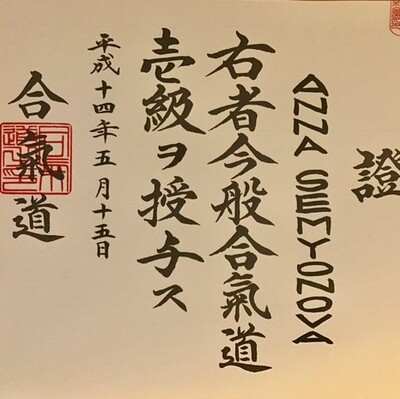 證
ANNA SEMYONOVA
右者今般合氣道
壱級ヲ授与ス
平成十四年五月十五日
合氣道